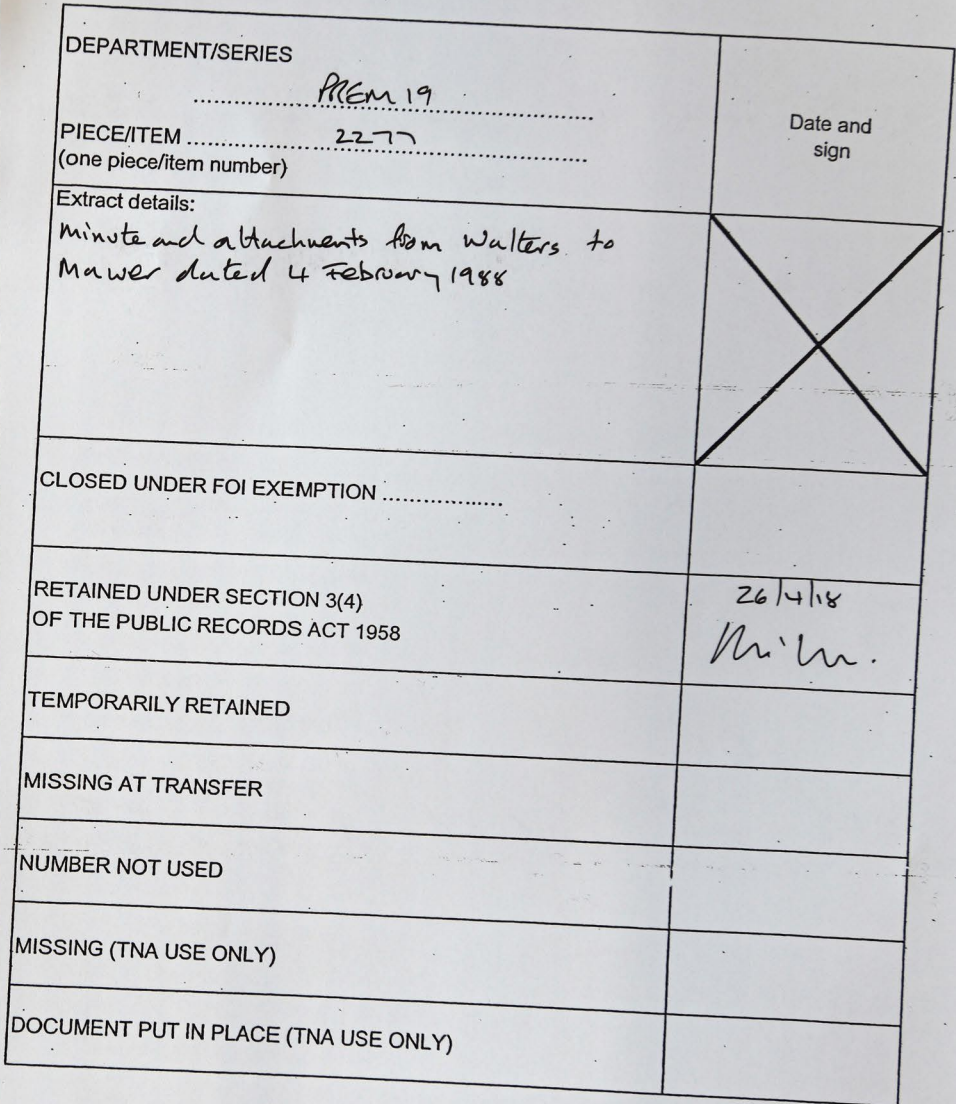 DEPARTMENT/SERIES
PREM 19
Date and
sign
PIECE/ITEM 2277
(one piece/item number)
Extract details:
Minute and attachments from Walters to
Mawer dated 4 February 1988
CLOSED UNDER FOI EXEMPTION
RETAINED UNDER SECTION 3(4)
OF THE PUBLIC RECORDS ACT 1958
26/4/18
TEMPORARILY RETAINED
MISSING AT TRANSFER
NUMBER NOT USED
MISSING (TNA USE ONLY)
DOCUMENT PUT IN PLACE (TNA USE ONLY)